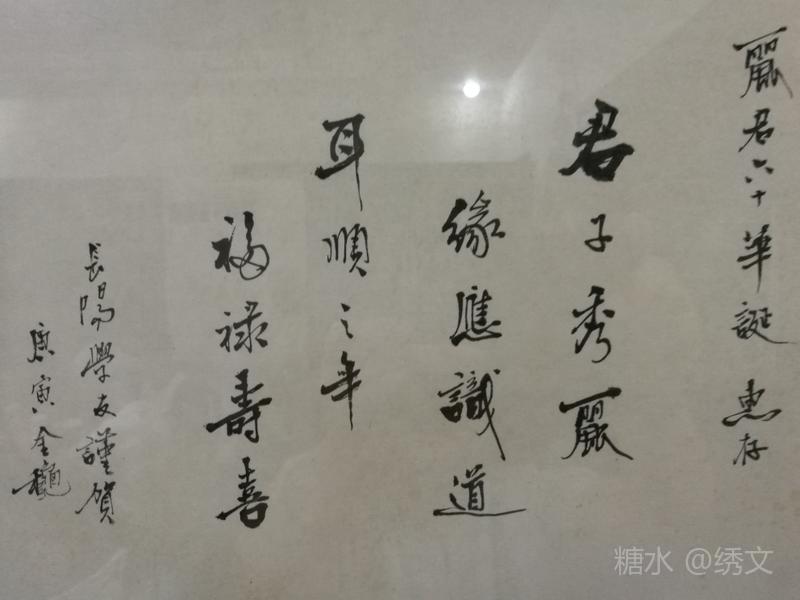 麗君六十華誕 惠存
君子秀麗
緣應識道
耳順之年
福祿壽喜
長陽學友謹賀
庚寅金
糖水 @绣文